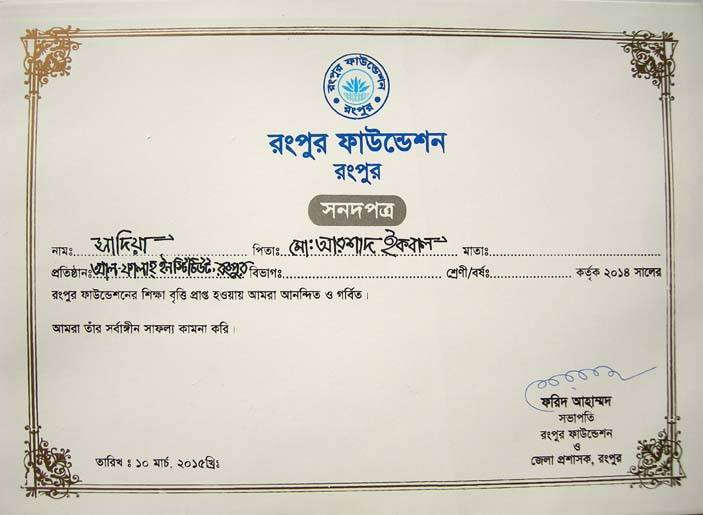 রংপুর ফাউন্ডেশন
রংপুর
রংপুর ফাউন্ডেশন
রংপুর
সনদপত্র
নামঃ সাদিয়া পিতাঃ মো: আরশাদ ইকবাল মাতাঃ
প্রতিষ্ঠানঃ আল-ফালাহ ইনস্টিটিউট, রংপুর বিভাগঃ শ্রেণী/বর্ষঃ কর্তৃক ২০১৪ সালের
রংপুর ফাউন্ডেশনের শিক্ষা বৃত্তি প্রাপ্ত হওয়ায় আমরা আনন্দিত ও গর্বিত।
আমরা তাঁর সর্বাঙ্গীন সাফল্য কামনা করি।
ফরিদ আহাম্মদ
সভাপতি
রংপুর ফাউন্ডেশন
ও
জেলা প্রশাসক, রংপুর
তারিখ ঃ ১০ মার্চ, ২০১৫খ্রিঃ